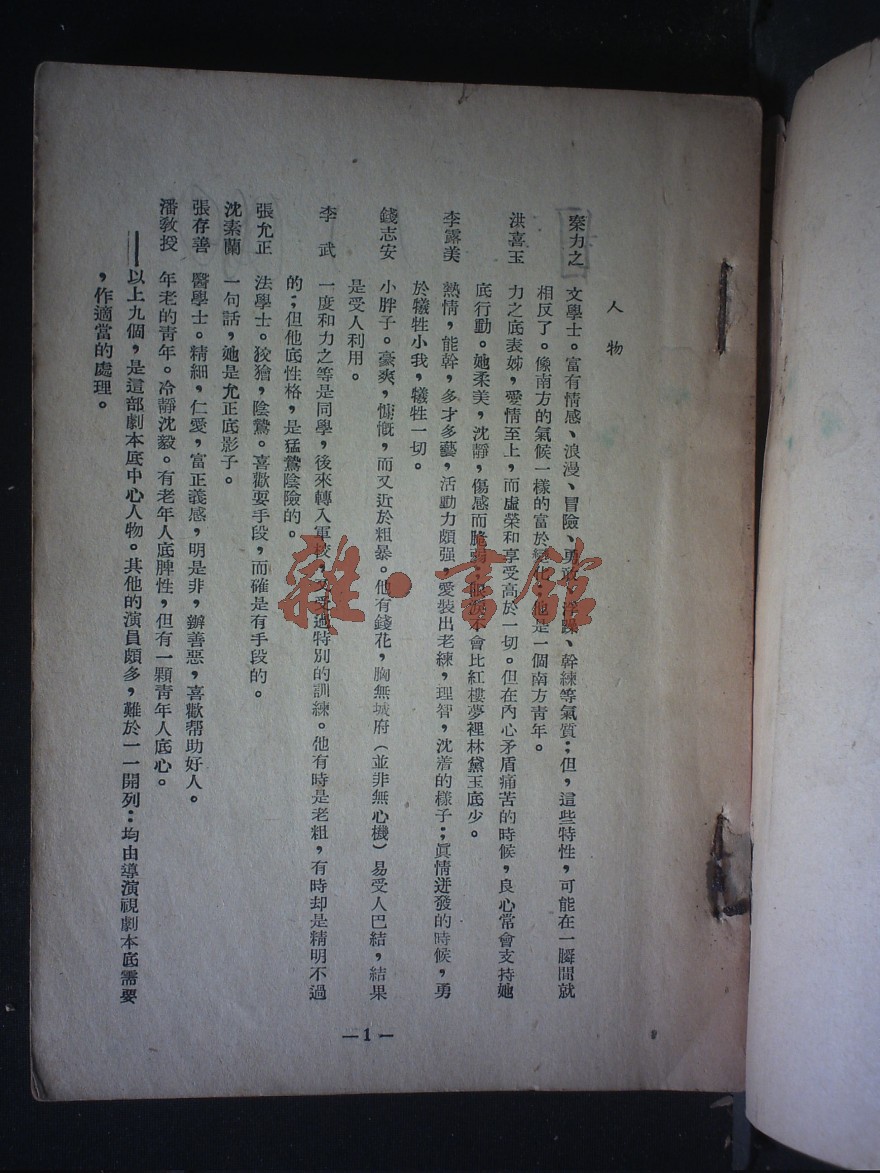 人物
秦力之　文學士。富有情感、浪漫、冒險、勇敢、浮躁、幹練等氣質；但，這些特性，可能在一瞬間就
相反了。像南方的氣候一樣的富於變化；他是一個南方青年。
洪喜玉　力之底表姊，愛情至上，而虛榮和享受高於一切。但在內心矛盾痛苦的時候，良心常會支持她
底行動。她柔美，沈靜，傷感而脆弱；眼淚不會比紅樓夢裡林黛玉底少。
李露美　熱情，能幹，多才多藝，活動力頗强，愛裝出老練，理智，沈着的樣子；眞情迸發的時候，勇
於犧牲小我，犧牲一切。
錢志安　小胖子。豪爽，慷慨，而又近於粗暴。他有錢花，胸無城府（並非無心機）易受人巴結，結果
是受人利用。
李　武　一度和力之等是同學，後來轉入軍校，又受過特別的訓練。他有時是老粗，有時却是精明不過
的；但他底性格，是猛鷙陰險的。
張允正　法學士。狡獪，陰鷙。喜歡耍手段，而確是有手段的。
沈素蘭　一句話，她是允正底影子。
張存善　醫學士。精細，仁愛，富正義感，明是非，辦善惡，喜歡帮助好人。
潘敎授　年老的靑年。冷靜沈毅。有老年人底脾性，但有一顆靑年人底心。
——以上九個，是這部劇本底中心人物。其他的演員頗多，難於一一開列：均由導演視劇本底需要
，作適當的處理。
—1—
雜·書館